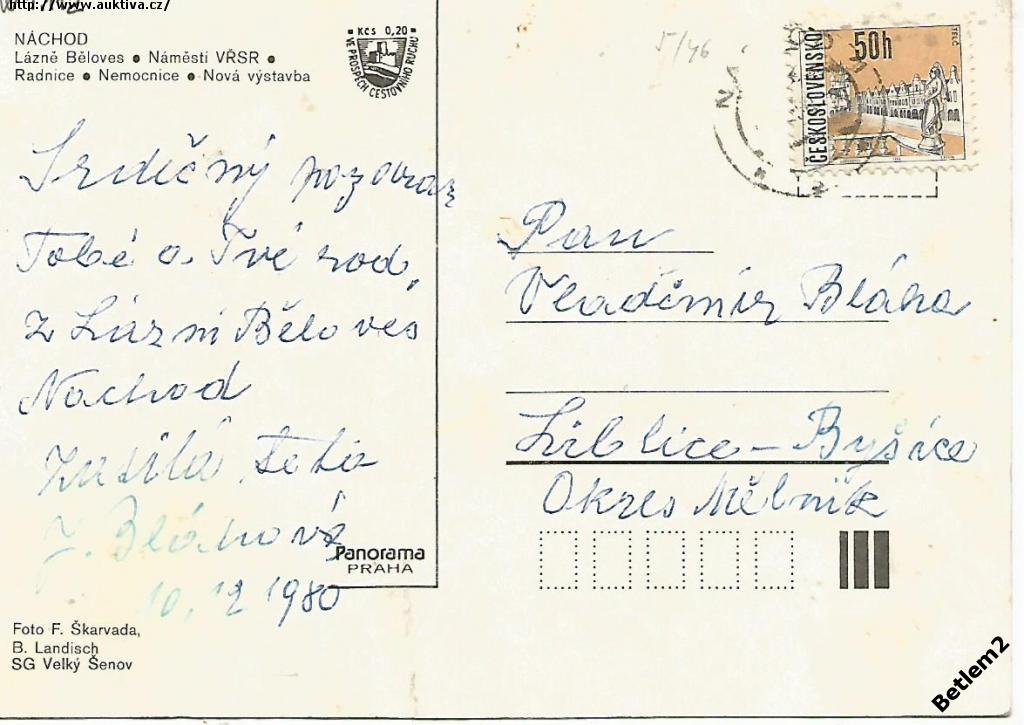 http://www.auktiva.cz/
NÁCHOD
Lázně Běloves • Náměstí VŘSR •
Radnice • Nemocnice • Nová výstavba
Kčs 0,20
VE PROSPĚCH CESTOVNÍHO RUCHU
5/46
50h
TELČ
ČESKOSLOVENSKO
Srdečný pozdrav
Tobě a Tvé rod.
z Lázní Běloves
Náchod
teta
J. Bláhová
10. 12 1980
Panorama
PRAHA
Foto F. Škarvada,
B. Landisch
SG Velký Šenov
Pan
Vladěmír Bláha
Liblice - Byšice
Okres Mělník
Betlem2